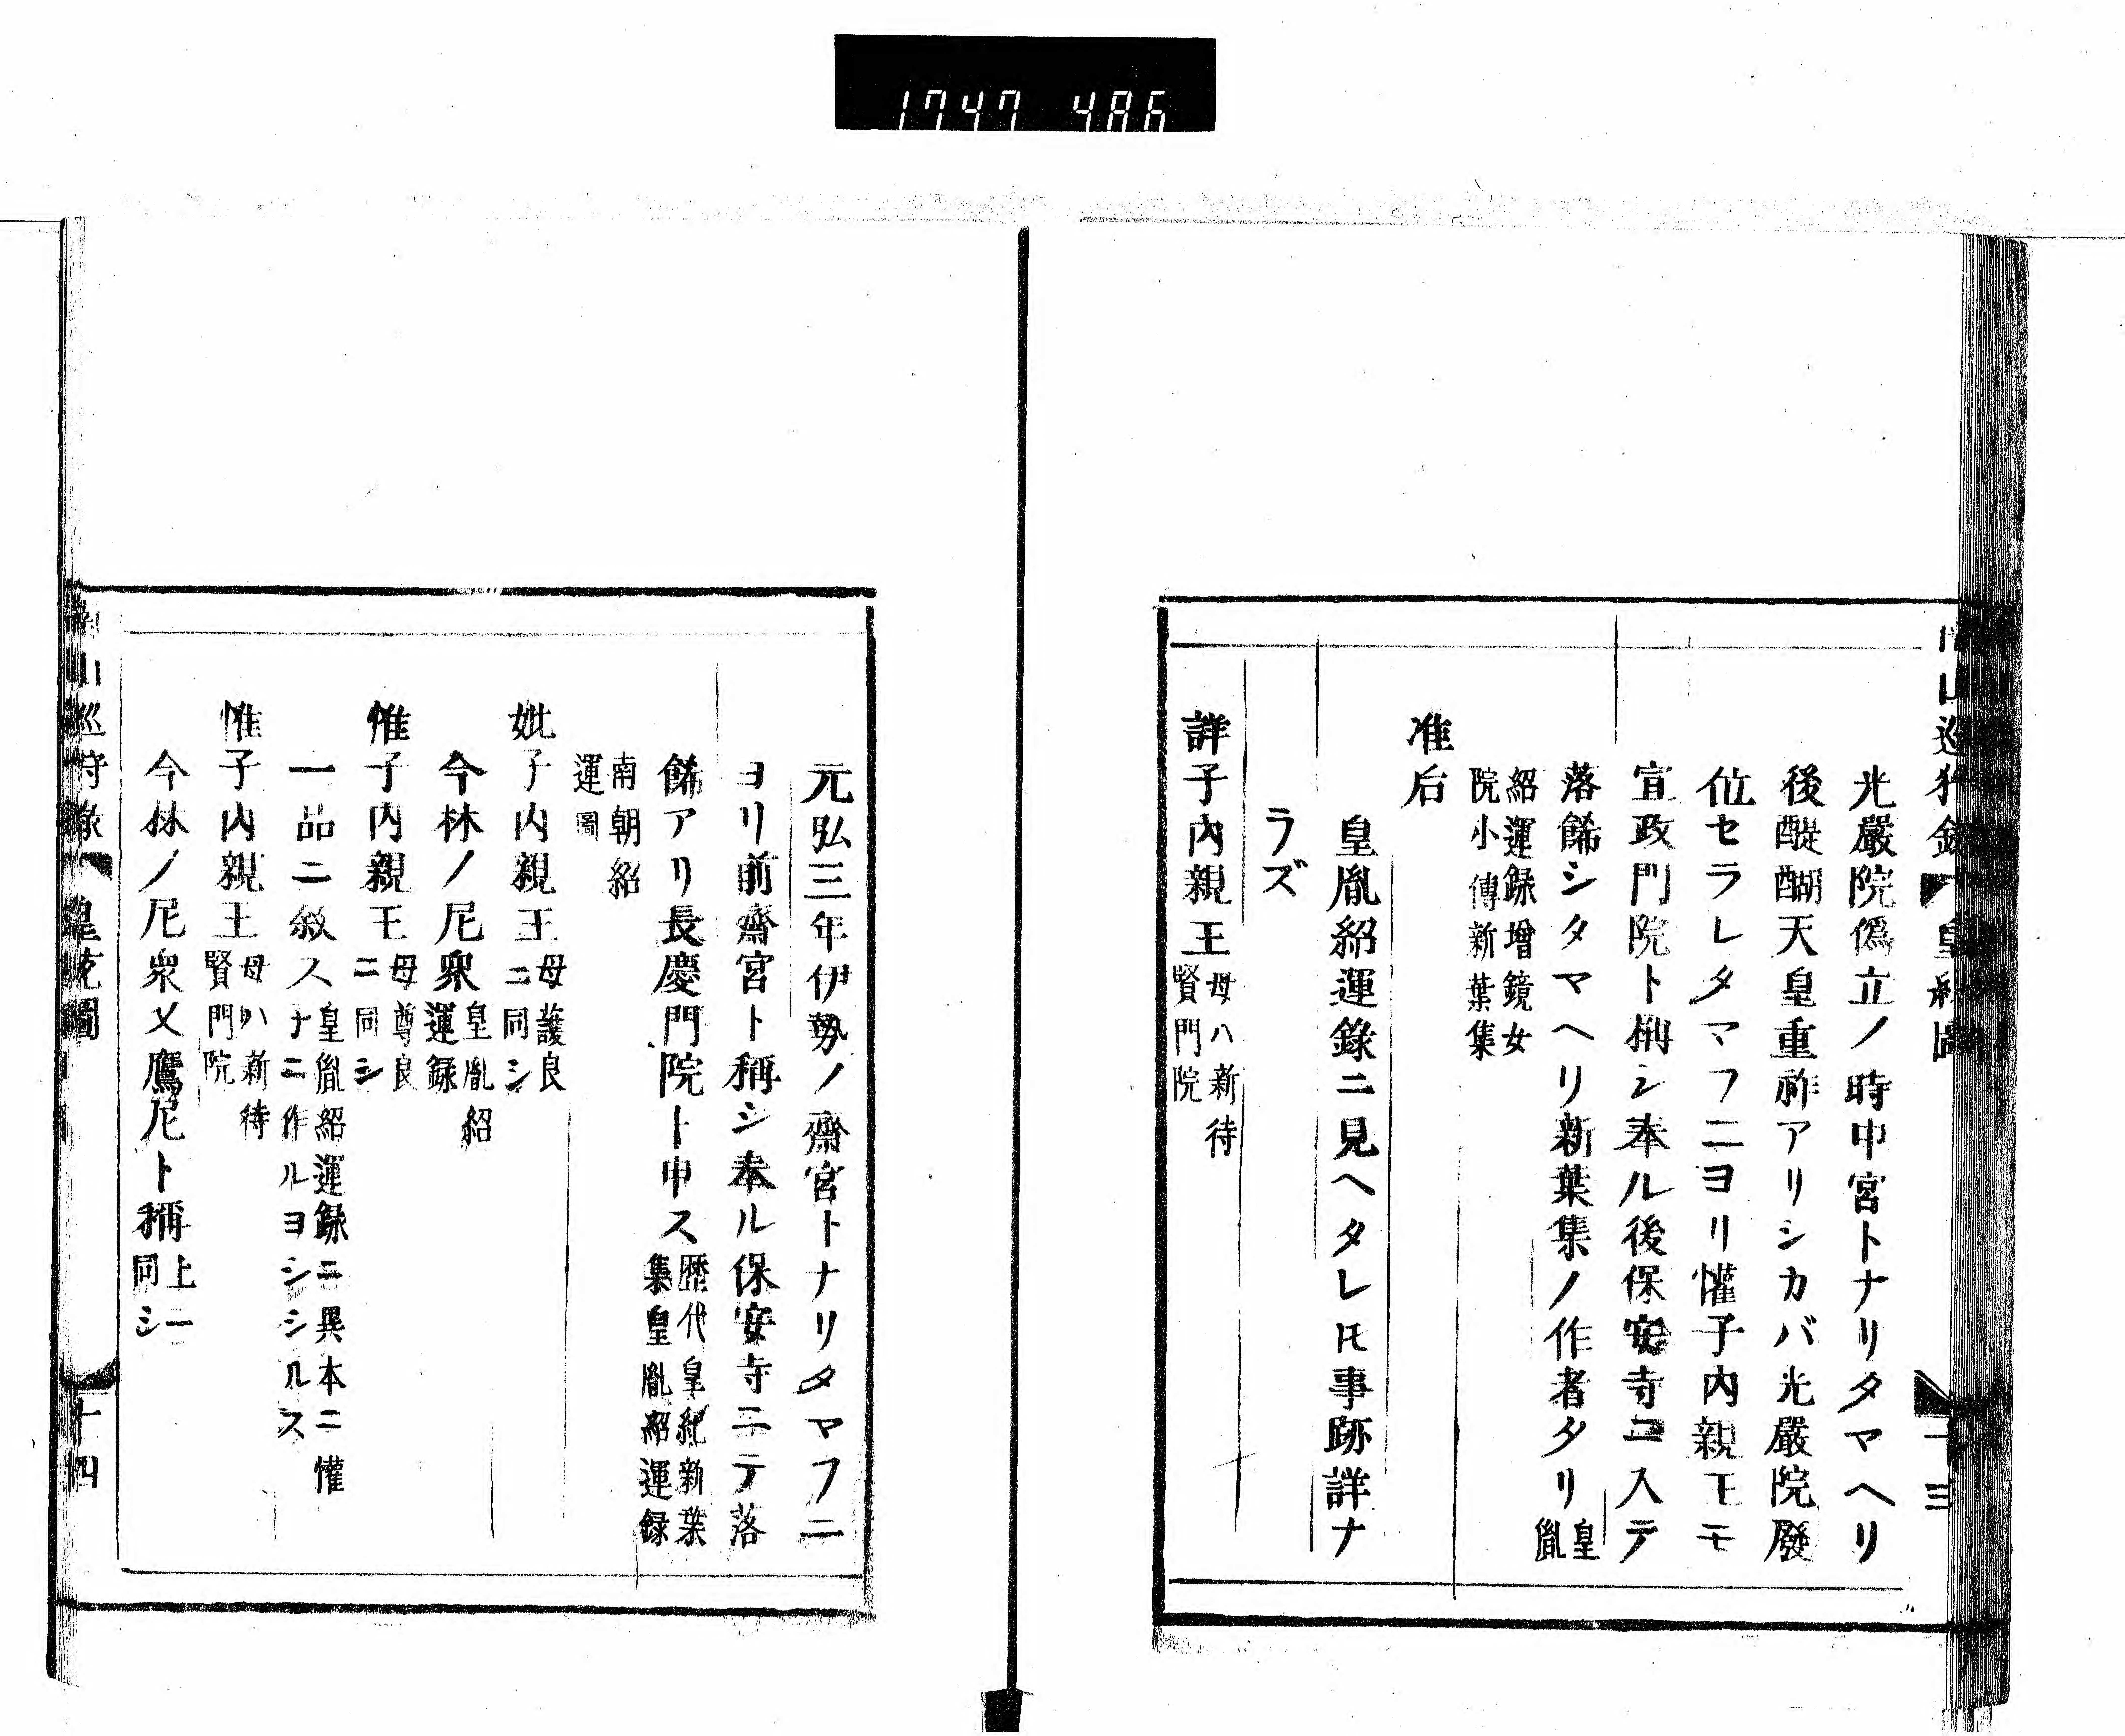 1747 486
光嚴院僞立ノ時中宮トナリタマヘリ
後醍醐天皇重祚アリシカバ光嚴院廢
位セラレタマフニヨリ懽子内親王モ
宣政門院ト稱シ奉ル後保安寺ニ入テ
落餙シタマヘリ新葉集ノ作者タリ皇胤
紹運録增鏡女
院小傳新葉集
准后
皇胤紹運錄ニ見ヘタレ𪜈事跡詳ナ
ラズ
詳子内親王母ハ新待
賢門院
元弘三年伊勢ノ齋宮トナリタマフニ
ヨリ前齋宮ト稱シ奉ル保安寺ニテ落
餙アリ長慶門院ト申ス歴代皇紀新葉
集皇胤紹運録
南朝紹
運圖
妣子内親王母護良
ニ同シ
今林ノ尼衆皇胤紹
運録
惟子内親王母尊良
ニ同シ
一品ニ敘ス皇胤紹運録ニ異本ニ懽
ナニ作ルヨシシルス
惟子内親王母ハ新待
賢門院
今林ノ尼衆又鷹尼ト稱上ニ
同シ
山巡狩錄 皇統圖 十四